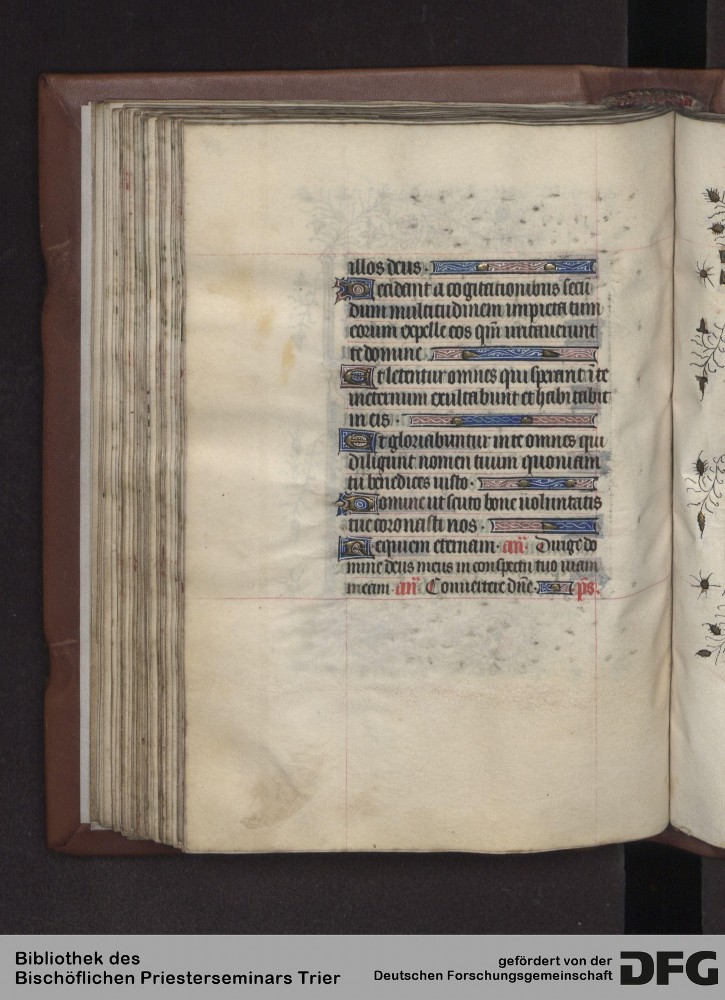 illos deus.
Decidant a cogitationibus secū
dum multitudinem impietatum
eorum expelle eos qm̄ irritauerunt
te domine
Et letentur omnes qui sperant ī te
in eternum exultabunt et habitabit
in eis.
Et gloriabuntur in te omnes qui
diligunt nomen tuum quoniam
tu benedices iusto.
Domine ut scuto bone uoluntatis
tue coronasti nos.
Requiem eternam. an̄ Dirige do
mine deus meus in conspectu tuo uiam
meam. an̄ Conuertere dn̄e. ps̄.
Bibliothek des
Bischöflichen Priesterseminars Trier
gefördert von der
Deutschen Forschungsgemeinschaft
DFG